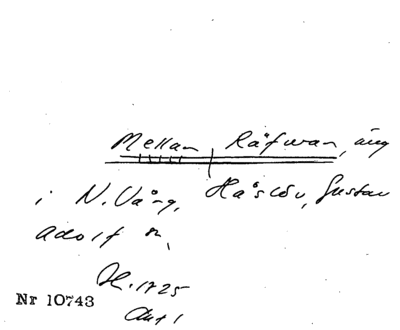 Mellan Räfwan, äng
i N. Vång, Håslöv, Gustav
Adolf
1725
Nr 10743